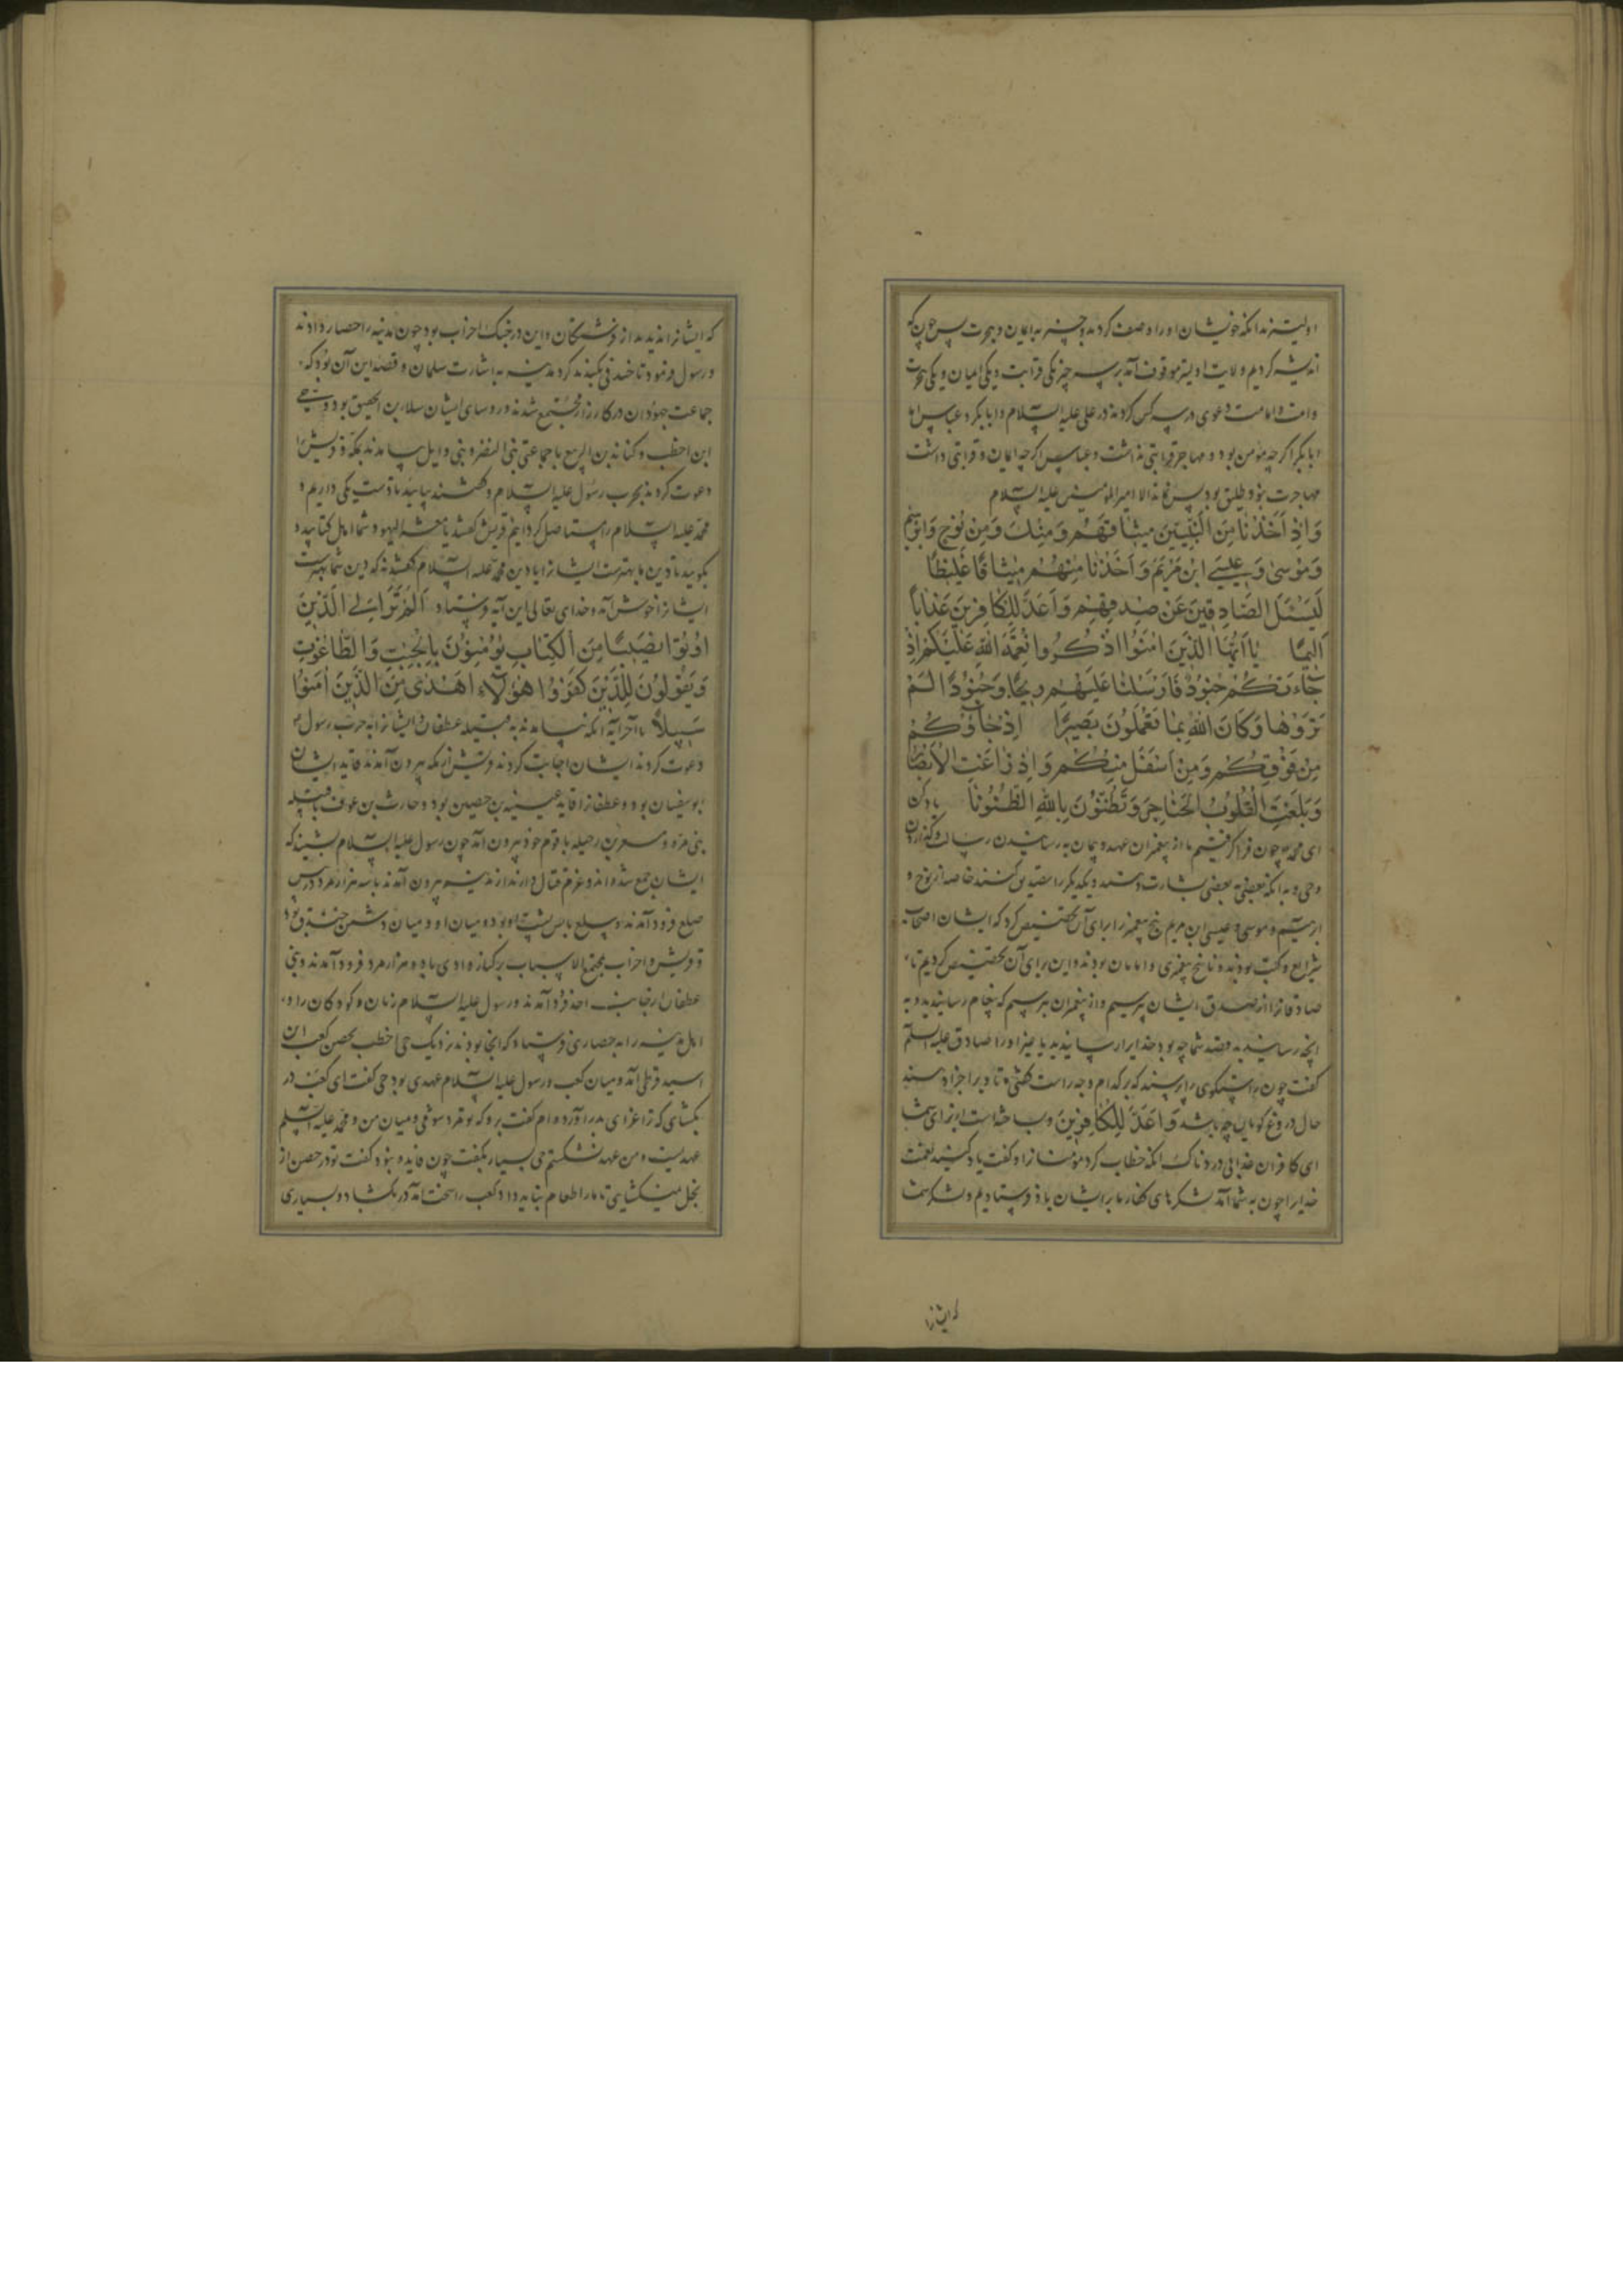 اولیترند انکه خویشان او را وصف کرد بدو چیز به ایمان و هجرت پس چون که
اندیشه کردیم ولایت اولیتر موقوف آمد بر سه چیز یکی قرابت و یکی ایمان و یکی هجرت
وامت در امامت دعوی در سه کس کردند در علی علیه السلام و ابابکر و عباس اما
ابابکر اگر چه مؤمن بود و مهاجر قرابتی نداشت و عباس اگر چه ایمان و قرابتی داشت
مهاجرت نبود و طلیق بود پس نماند الا امیرالمؤمنین علیه السلام
وَاِذْ اَخَذْنَا مِنَ النَّبِیّینَ میثاقَهُمْ وَمِنْكَ وَمِنْ نُوحٍ وَابْرهیمَ
وَمُوسٰی وَعیسَی ابْنِ مَرْیَمَ وَاَخَذْنا مِنْهُمْ میثاقًا غَلیظًا
لِیَسْئَلَ الصّادِقینَ عَنْ صِدْقِهِمْ وَاَعَدَّ لِلْكافِرینَ عَذاباً
اَلیمًا یا اَیُّهَا الَّذینَ امَنُوا اذْكُرُوا نِعْمَةَ اللهِ عَلَیْكُمْ اِذْ
جاءَتْكُمْ جُنُودٌ فَاَرْسَلْنا عَلَیْهِمْ ریحًا وَجُنُودًا لَمْ
تَرَوْها وَكانَ اللهُ بِما تَعْمَلُونَ بَصیرًا اِذْ جاؤُكُمْ
مِنْ فَوْقِكُمْ وَمِنْ اَسْفَلَ مِنْكُمْ وَاِذْ زاغَتِ الْاَبْصارُ
وَبَلَغَتِ الْقُلُوبُ الْحَناجِرَ وَتَظُنُّونَ بِاللهِ الظُّنُونَا یاد کن
ای محمد چون فرا گرفتیم ما از پیغمبران عهد و پیمان به رسانیدن رسالت و گذاردن
وحی و به انکه بعضی به بعضی بشارت دهند و یکدیگر را تصدیق کنند خاصه از نوح و
ابرهیم و موسی و عیسی ابن مریم پنج پیغمبر را برای آن تخصیص کرد که ایشان اصحاب
شرایع و کتب بودند و ناسخ پیغمبری و امامان بودند و این برای آن تخصیص کردیم تا
صادقانرا از صدق ایشان پرسیم و از پیغمبران پرسیم که پیغام رسانیدید و به
انچه رسانیدید قصد شما چه بود خدایرا رسانیدید یا غیر او را صادق علیه السلم
گفت چون راستگوی را پرسند که بر کدام وجه راست گفتی تا ویرا جزا دهند
حال دروغ گویان چه باشد وَاَعَدَّ لِلْكافِرینَ و ساخته است از برای شما
ای کافران عذابی دردناک انکه خطاب کرد مؤمنانرا و گفت یاد کنید نعمت
خدایرا چون به شما آمد لشکرهای کفار ما بر ایشان باد فرستادیم و لشکر شما
که ایشانرا
که ایشانرا ندیدند از فرشتگان و این در جنگ احزاب بود چون مدینه را حصار دادند
و رسول فرمود تا خندقی بکندند گرد مدینه به اشارت سلمان و قصه این آن بود که
جماعت جهودان در کارزار مجتمع شدند و روسای ایشان سلام بن الحقیق بود و حیی
ابن اخطب و کنانه بن الربیع با جماعتی بنی النضر و بنی وایل بیامدند بمکه و قریش را
دعوت کردند بحرب رسول علیه السلام و گفتند بیایید تا دست یکی داریم و
محمد علیه السلام را مستاصل گردانیم قریش گفتند یا معشر الیهود شما اهل کتابید و
بگویید تا دین ما بهترست ایشانرا یا دین محمد علیه السلام گفتند نه که دین شما بهترست
ایشانرا خوش آمد و خدای تعالی این آیه فرستاد اَلَمْ تَرَ اِلَی الَّذینَ
اُوتُوا نَصیبًا مِنَ الْكِتابِ یُؤْمِنُونَ بِالْجِبْتِ وَالطّاغُوتِ
وَیَقُولُونَ لِلَّذینَ كَفَرُوا هٰؤُلاءِ اَهْدٰی مِنَ الَّذینَ امَنُوا
سَبیلاً تا آخر آیه انکه بیامدند به قبیله عطفان و ایشانرا به حرب رسول
دعوت کردند ایشان اجابت کردند و قریش از مکه بیرون آمدند قاید ایشان
بوسفیان بود و عطفانرا قاید عیینه بن حصین بود و حارث بن عوف با قبیله
بنی مره و مسعر بن رحیله با قوم خود بیرون آمد چون رسول علیه السلام بشنید که
ایشان جمع شده اند و عزم قتال دارند از مدینه بیرون آمدند با سه هزار مرد در پس
صلع فرود آمدند و سلع با پس پشت او بود و میان او و میان دشمن خندق بود
و قریش و احزاب مجتمع الاسباب بر کناره وادی با ده هزار مرد فرود آمدند و بنی
عطفان از جانب احد فرود آمدند و رسول علیه السلام زنان و کودکان را و
اهل مدینه را به حصاری فرستاد که آنجا بودند نزدیک حی اخطب بحصن کعب ابن
اسید قرظی آمد و میان کعب و رسول علیه السلام عهدی بود حی گفت ای کعب در
بگشای که ترا عزای بدر آورده ام گفت برو که تو مرد شومی و میان من و محمد علیه السلم
عهدیست و من عهد نشکستم حی بسیار بگفت چون فایده نبود گفت تو در حصن از
بخل نمیگشایی تا ما را طعام نباید داد کعب را سخت آمد در بگشاد و بسیاری